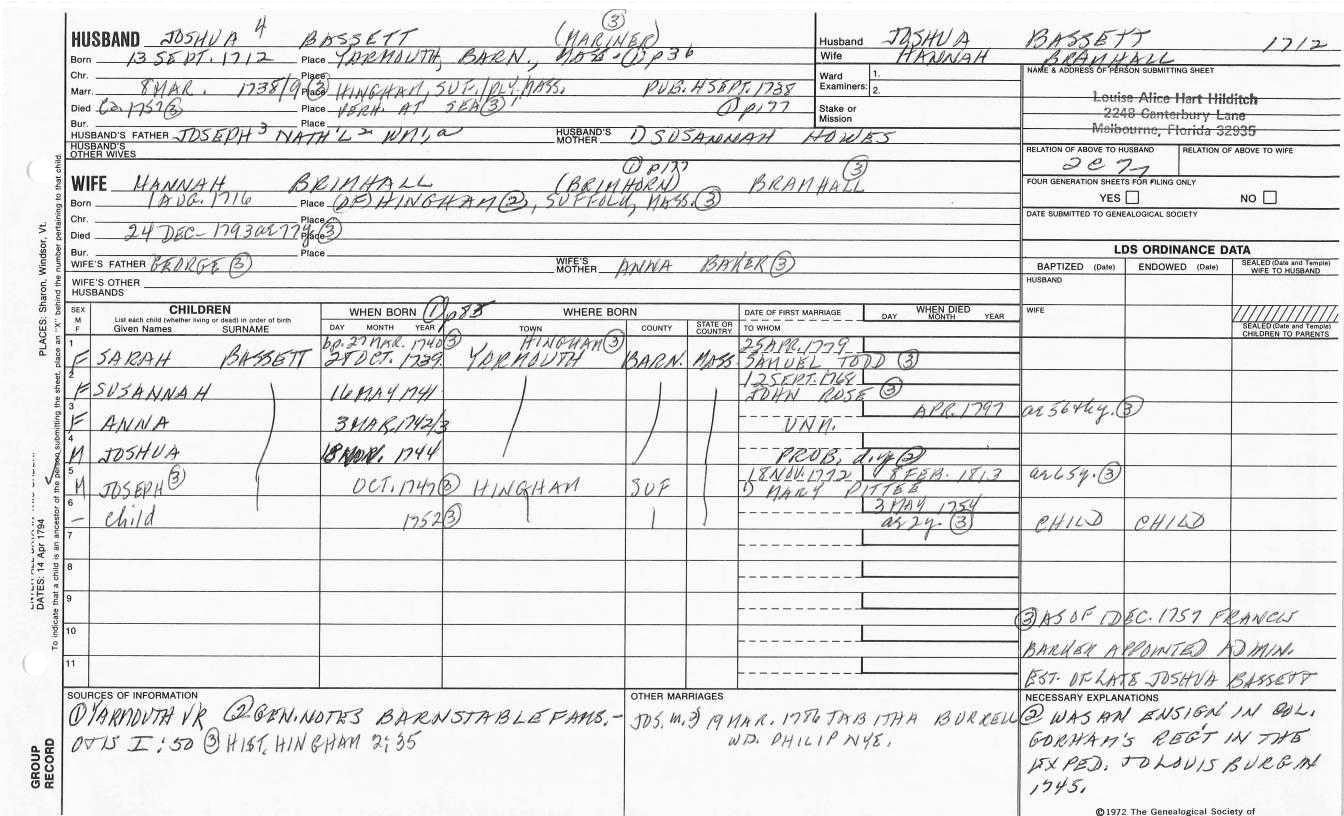 HUSBAND JOSHUA 4 BASSETT (MARINER) ③
Born 13 SEPT. 1712 Place YARMOUTH, BARN., MASS. ① p36
Chr. Place
Marr. 8 MAR. 1738/9 ③ Place HINGHAM, SUF./PLY. MASS. PUB. 4 SEPT. 1738
Died Ca 1757 ③ Place PERH. AT SEA ③ ① p177
Bur. Place
HUSBAND'S FATHER JOSEPH 3 NATH'L 2 WM. HUSBAND'S MOTHER 1) SUSANNAH HOWES
HUSBAND'S OTHER WIVES
① p177 ③
WIFE HANNAH BRIMHALL (BRIMHORN) BRAMHALL
Born 1 AUG. 1716 Place (OF) HINGHAM ②, SUFFOLK, MASS. ③
Chr. Place
Died 24 DEC - 1793 ae 77y. ③ Place
Bur. Place
WIFE'S FATHER GEORGE ③ WIFE'S MOTHER ANNA BAKER ③
WIFE'S OTHER HUSBANDS
Husband JOSHUA BASSETT 1712
Wife HANNAH BRAMHALL
Ward Examiners: 1.
2.
Stake or Mission
NAME & ADDRESS OF PERSON SUBMITTING SHEET
Louise Alice Hart Hilditch
2248 Canterbury Lane
Melbourne, Florida 32935
RELATION OF ABOVE TO HUSBAND RELATION OF ABOVE TO WIFE
2C7
FOUR GENERATION SHEETS FOR FILING ONLY
YES NO
DATE SUBMITTED TO GENEALOGICAL SOCIETY
LDS ORDINANCE DATA
BAPTIZED (Date) ENDOWED (Date) SEALED (Date and Temple) WIFE TO HUSBAND
HUSBAND
WIFE
SEALED (Date and Temple) CHILDREN TO PARENTS
SEX M F CHILDREN WHEN BORN ① p85 WHERE BORN DATE OF FIRST MARRIAGE WHEN DIED
List each child (whether living or dead) in order of birth
Given Names SURNAME DAY MONTH YEAR TOWN COUNTY STATE OR COUNTRY TO WHOM DAY MONTH YEAR
1 bp. 27 MAR. 1740 ③ HINGHAM ③ 25 APR. 1779
F SARAH BASSETT 28 OCT. 1739 YARMOUTH BARN. MASS. SAMUEL TODD ③
2 12 SEPT. 1768
F SUSANNAH 16 MAY 1741 JOHN ROSE ③
3 APR. 1797 ae 56thy. ③
F ANNA 3 MAR. 1742/3 UNM.
4
M JOSHUA 18 NOV. 1744 PROB. d.y. ②
5 18 NOV. 1772 8 FEB. 1813 ae 65y. ③
M JOSEPH ③ OCT. 1747 ③ HINGHAM SUF 1) MARY PITTEE
6 3 MAY 1754
- child 1752 ③ ae 2y. ③ CHILD CHILD
7
8
9
10
11
③ AS OF 1 DEC. 1757 FRANCIS
BARKER APPOINTED ADMIN.
EST. OF LATE JOSHUA BASSETT
SOURCES OF INFORMATION
① YARMOUTH VR ② GEN. NOTES BARNSTABLE FAMS. -
OTIS I:50 ③ HIST. HINGHAM 2:35
OTHER MARRIAGES
JOS. m. 2) 19 MAR. 1786 TABITHA BURRELL
WD. PHILIP NYE.
NECESSARY EXPLANATIONS
② WAS AN ENSIGN IN COL.
GORHAM'S REG'T IN THE
EXPED. TO LOUISBURG IN
1745.
©1972 The Genealogical Society of
PLACES: Sharon, Windsor, Vt.
DATES: 14 Apr 1794
To indicate that a child is an ancestor of the person submitting the sheet, place an "X" behind the number pertaining to that child.
GROUP RECORD